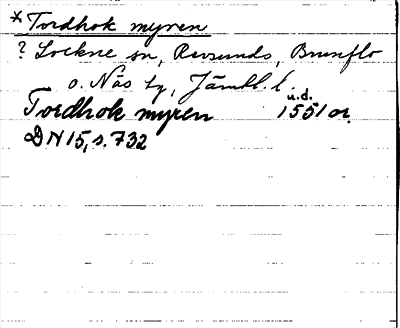 *Tordhok myren
? Lockne sn, Revsunds, Brunflo
o. Näs tg, Jämtl. l.
u.d.
Tordhok myren 1551 or.
DN 15, s. 732